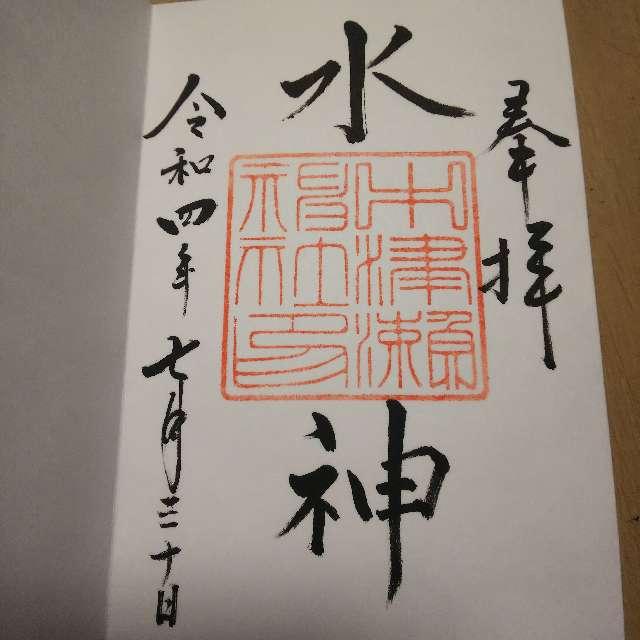 奉拝
水神
中津瀬
神社印
令和四年七月三十日